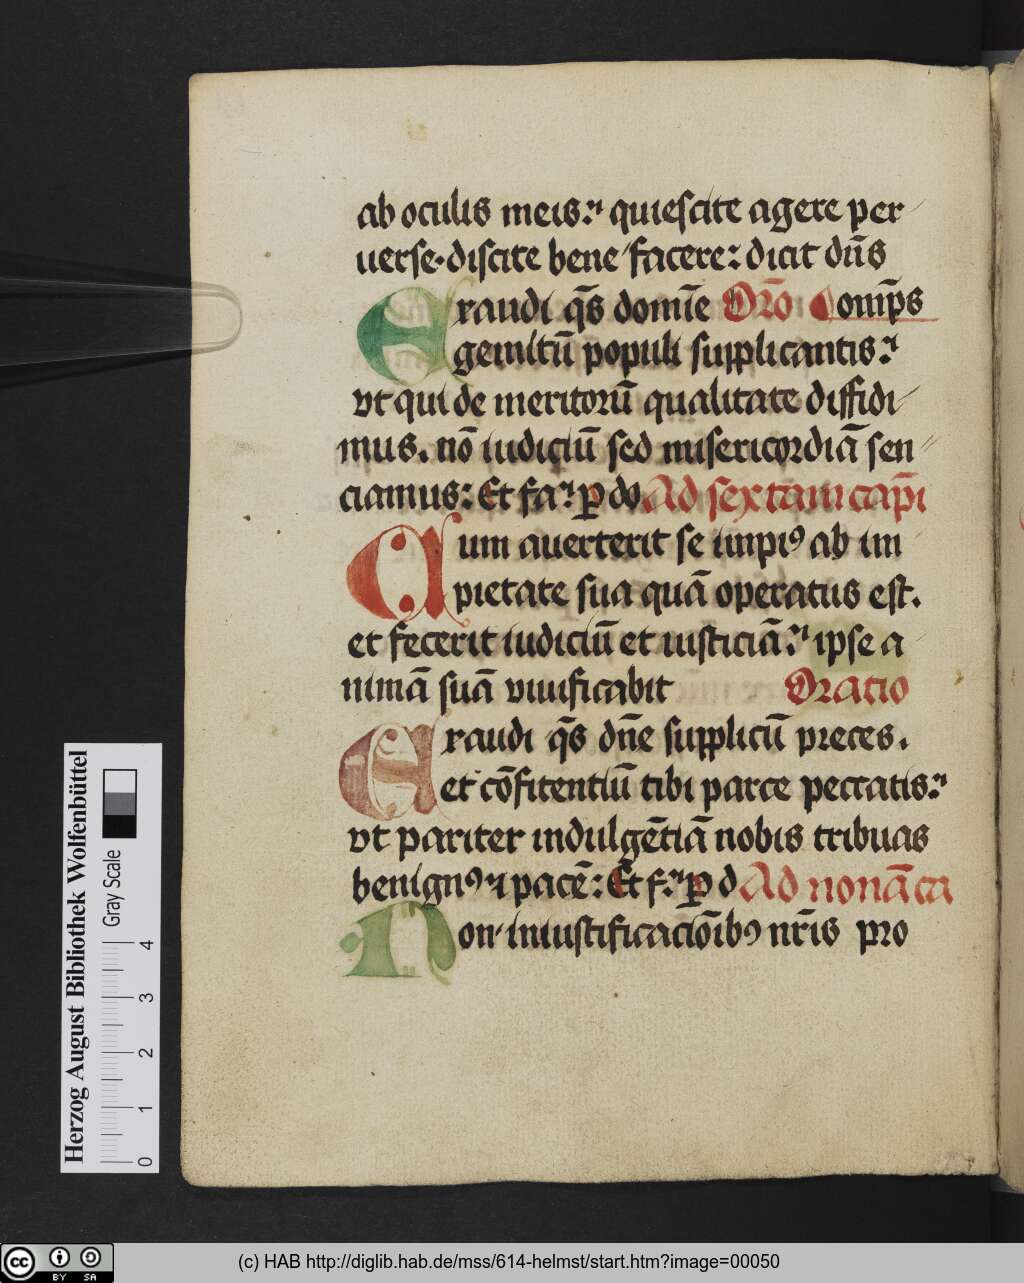 ab oculis meis: quiescite agere per
uerse. discite bene facere: dicit dn̄s
Exaudi q̄s domīe Orō Om̄ps
gemitū populi supplicantis:
vt qui de meritorū qualitate diffidi
mus. nō iudiciū sed misericordiā sen
ciamus: Et fa: ꝑ do Ad sextam capi
Cum auerterit se impiꝰ ab im
pietate sua quā operatus est.
et fecerit iudiciū et iusticiā: ipse a
nimā suā viuificabit Oratio
Exaudi q̄s dn̄e supplicū preces.
et cōfitentiū tibi parce peccatis:
vt pariter indulgētiā nobis tribuas
benignꝰ ⁊ pacē: Et f: ꝑ d Ad nonā ca
Non in iustificacōibꝰ nr̄is pro
Herzog August Bibliothek Wolfenbüttel
Gray Scale
0 1 2 3 4
cc BY SA
(c) HAB http://diglib.hab.de/mss/614-helmst/start.htm?image=00050